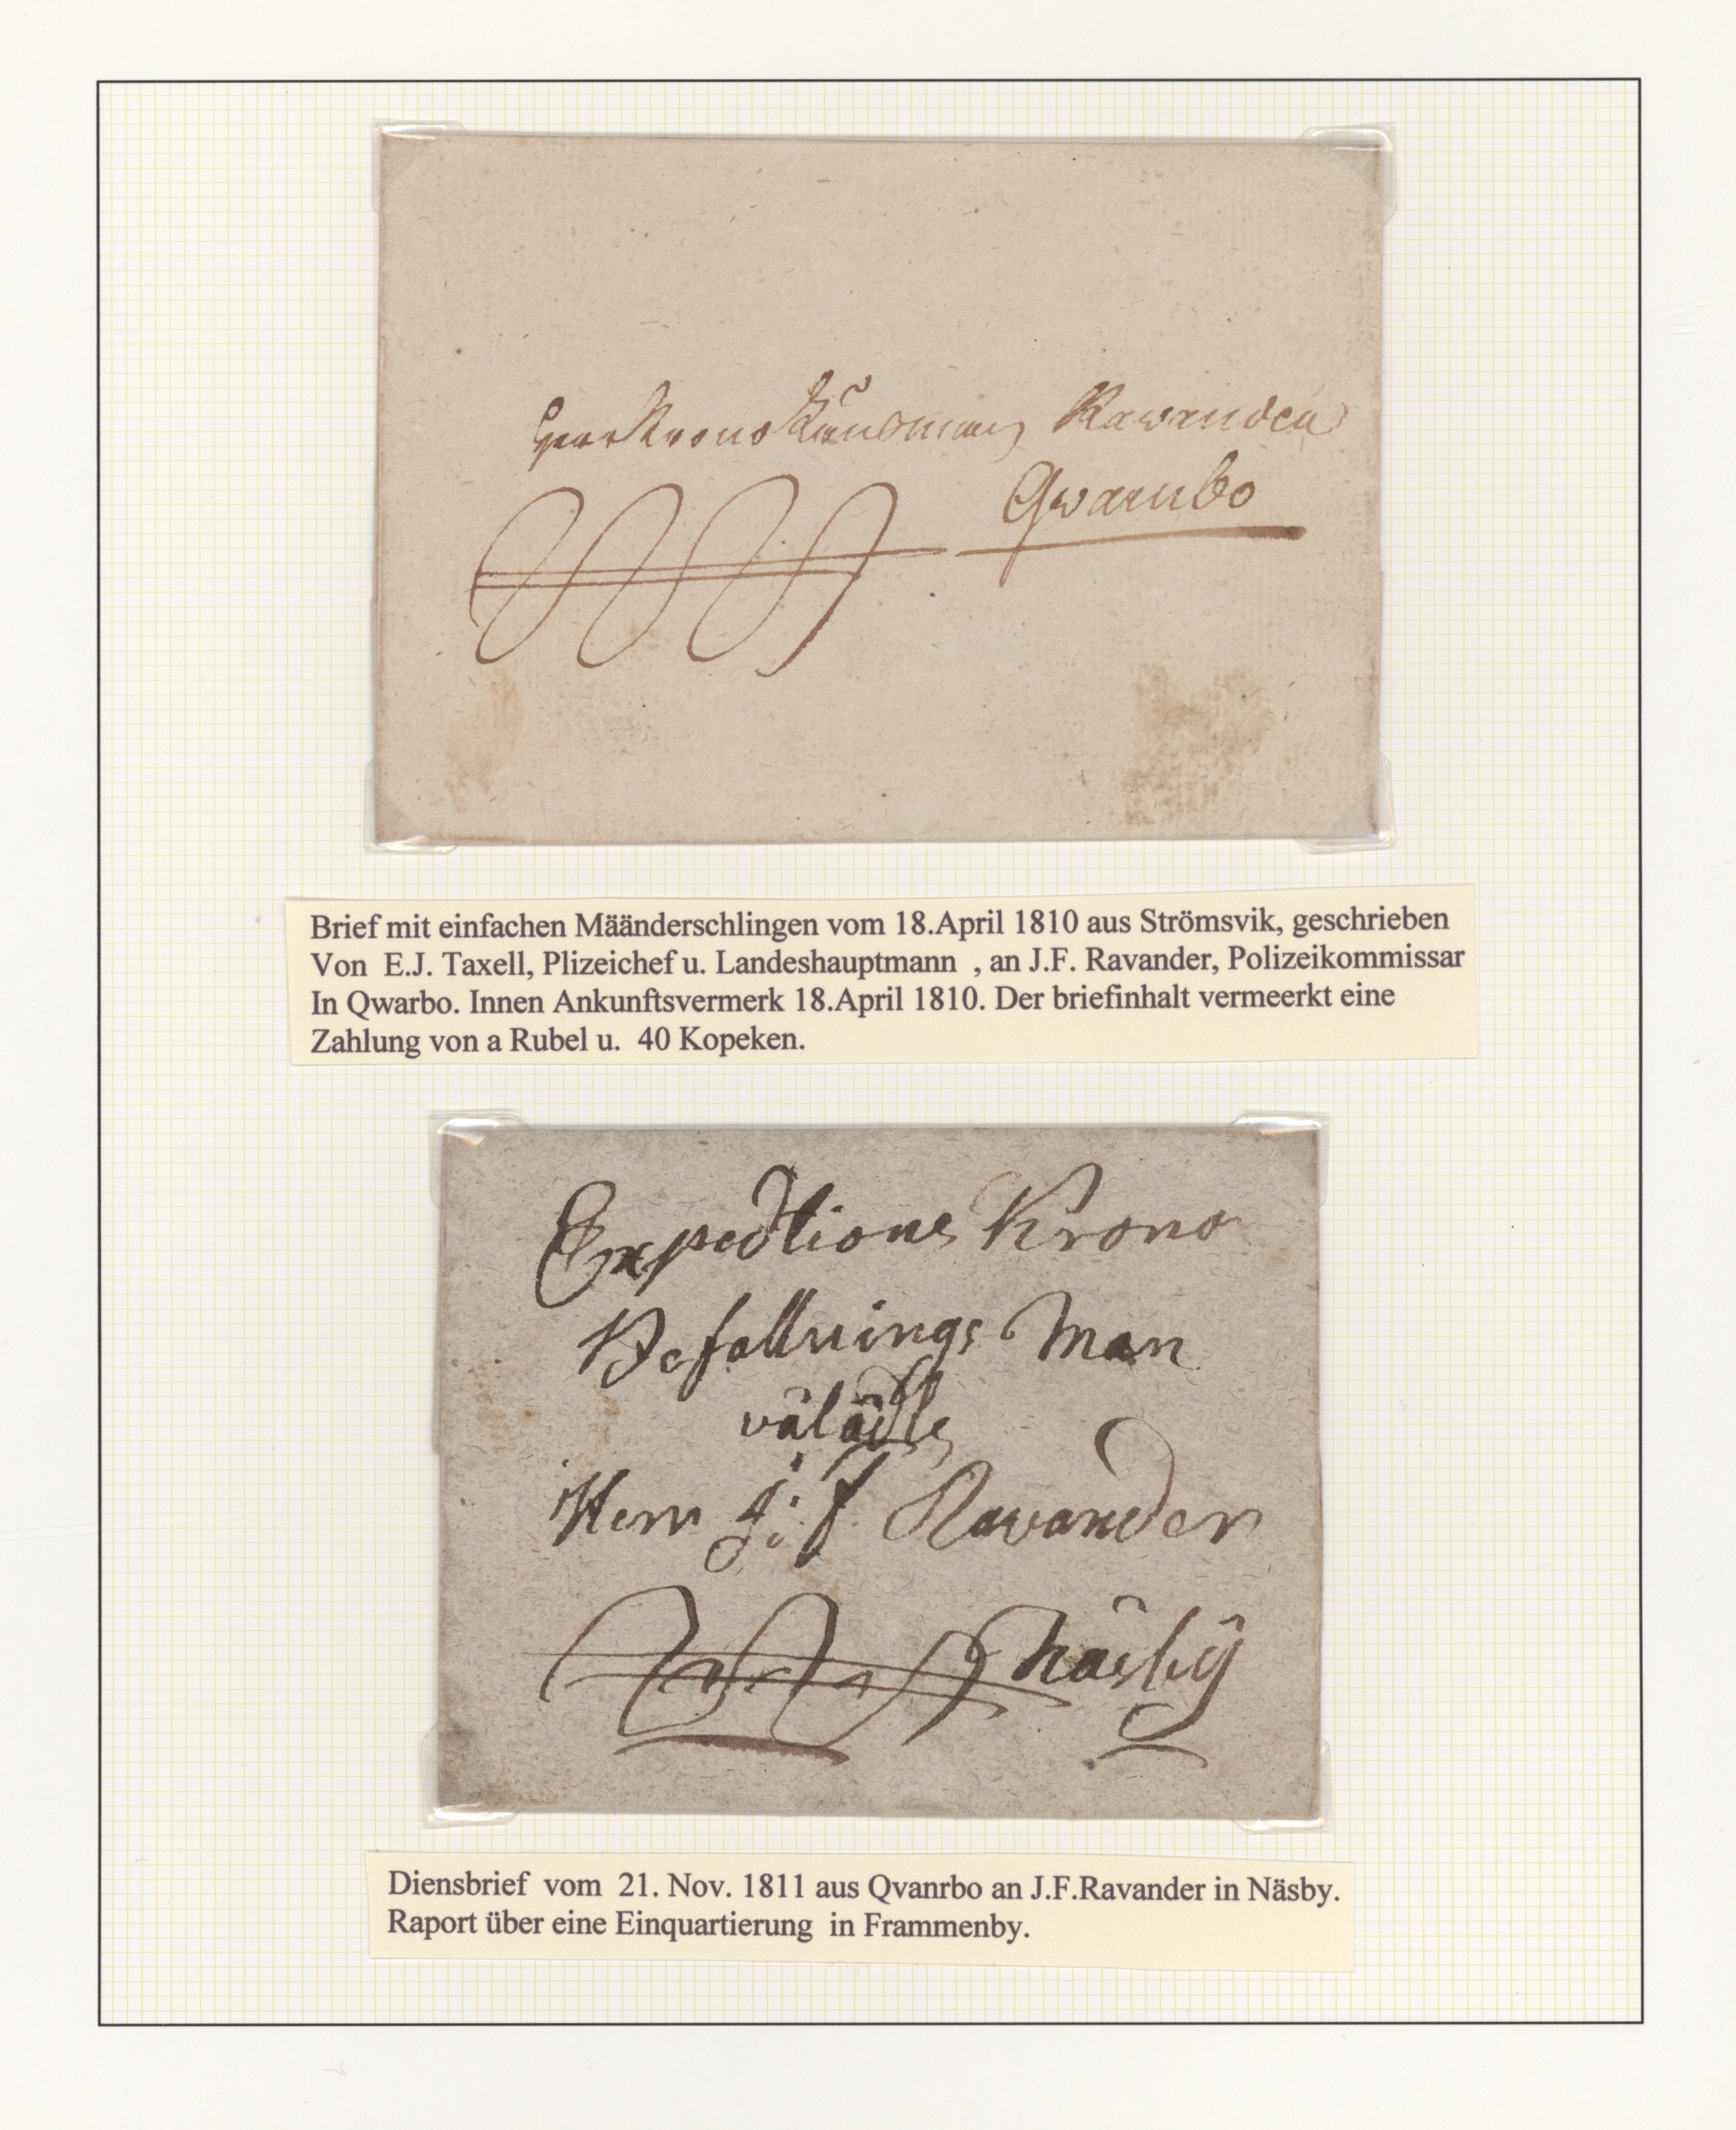 Herr Krono Länsman Ravander
Qvarnbo
Brief mit einfachen Määnderschlingen vom 18.April 1810 aus Strömsvik, geschrieben
Von E.J. Taxell, Plizeichef u. Landeshauptmann , an J.F. Ravander, Polizeikommissar
In Qwarbo. Innen Ankunftsvermerk 18.April 1810. Der briefinhalt vermeerkt eine
Zahlung von a Rubel u. 40 Kopeken.
Expeditions Krono
Befallnings Man
välädle
Herr J: F Ravander
Näsbÿ
Diensbrief vom 21. Nov. 1811 aus Qvanrbo an J.F.Ravander in Näsby.
Raport über eine Einquartierung in Frammenby.